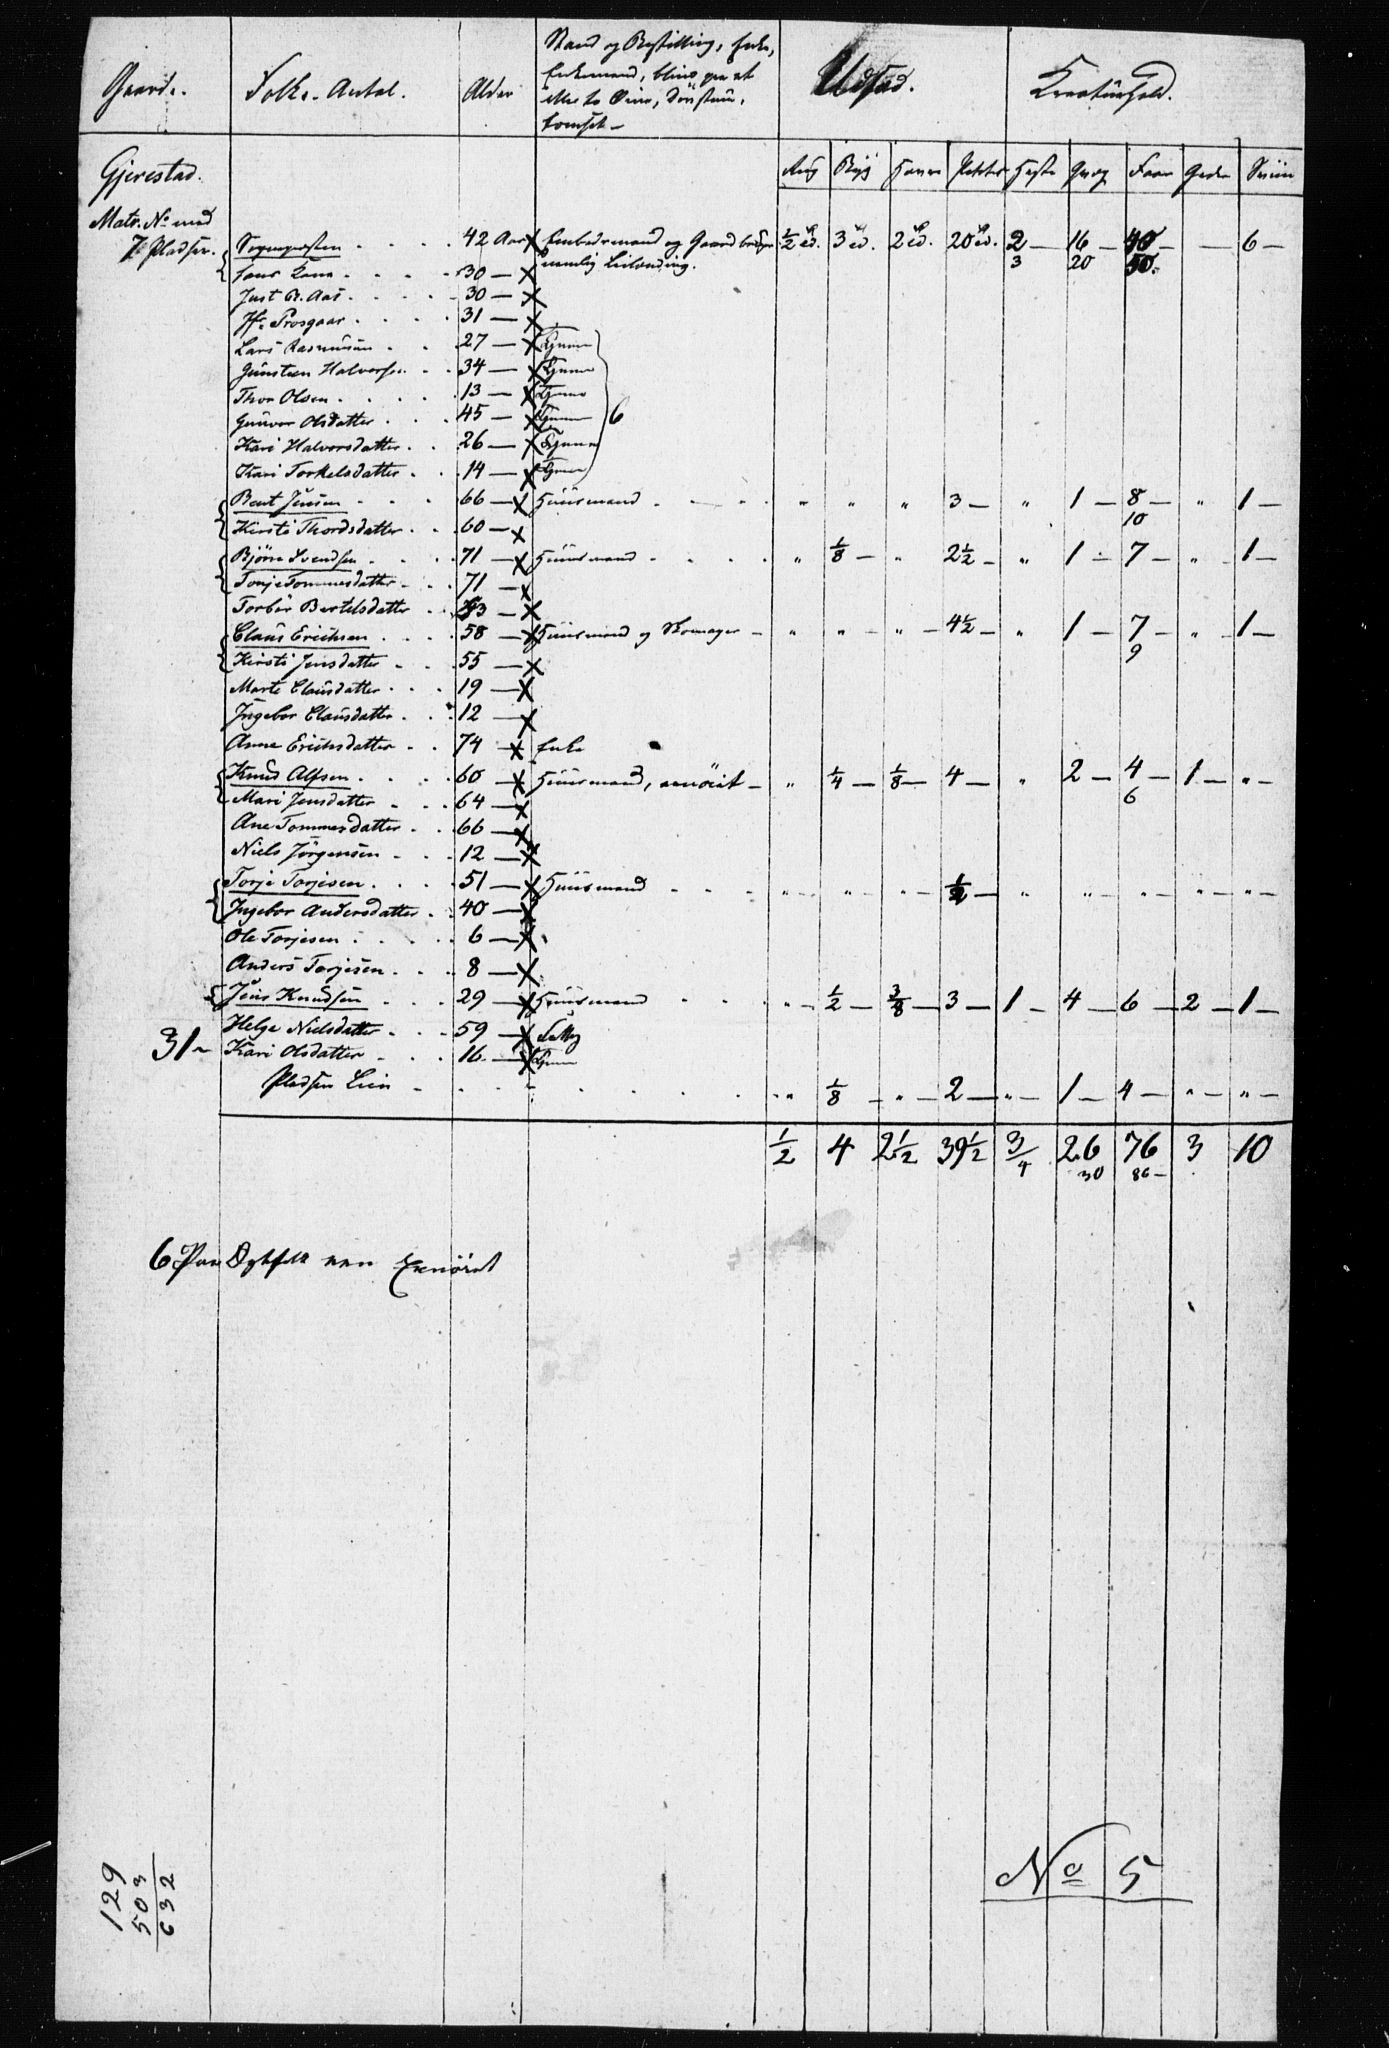 Gaarde. Folke-Antal. Alder Stand og Bestilling, Enke, Udsæd. Kreaturhold.
Enkemand, blind paa et
eller to Øine, Døvstum,
Rug Byg Havre Poteter Heste Qvæg Faar Geder Sviin
Gjerestad.
Matr. No med
7. Pladser. Sognepræsten 42 Aar Embedsmand og Gaardbruger ½ 3 2 20 2 — 16 — 40 — — 6 —
30 — nemlig Leilænding. 3 20 50.
Just B. Aas 30 —
Jfr Prosgaar 31 —
Lars Rasmusen 27 — Tjener
Gunsteen Halvorsen 34 — Tjener
Thor Olsen 13 — Tjener
Gunvor Olsdatter 45 — Tjener 6
Kari Halvorsdatter 26 — Tjener
Kari Torkelsdatter 14 — Tjener
Bent Jensen 66 — Huusmand " " " 3 — " 1 — 8 — " 1 —
Kirsti Thordsdatter 60 — 10
Bjørn Svendsen 71 — Huusmand " ⅛ — " 2½ — " 1 — 7 — " — 1 —
Tonje Tommesdatter 71 —
Torbør Bertelsdatter 53 —
Claus Erichsen 58 — Huusmand og Skomager — " " — " — 4½ — " 1 — 7 — " — 1 —
Kirsti Jensdatter 55 — 9
Marte Clausdatter 19 —
Ingebor Clausdatter 12 —
Anne Erichsdatter 74 — Enke
Knud Alfsen 60 — Huusmand, — " ¼ — ⅛ — 4 — " 2 — 4 — 1 — " —
Mari Jensdatter 64 — 6
Ane Tommesdatter 66 —
Niels Jørgensen 12 —
Torje Torjesen 51 — Huusmand " — " — " — ½ — " " — " — " — " —
Ingebor Andersdatter 40 —
Ole Torjesen 6 —
Anders Torjesen 8 —
Jens Knudsen 29 — Huusmand " — ½ — ⅜ — 3 — 1 — 4 — 6 — 2 — 1 —
Helge Nielsdatter 59 —
31 — Kari Olsdatter 16 — Tjener
Pladsen Lien " ⅛ — " — 2 — " — 1 — 4 — " — " —
½ 4 2½ 39½ 3 26 76 3 10
4 30 86 —
6 Paa
No 5
129
503
632